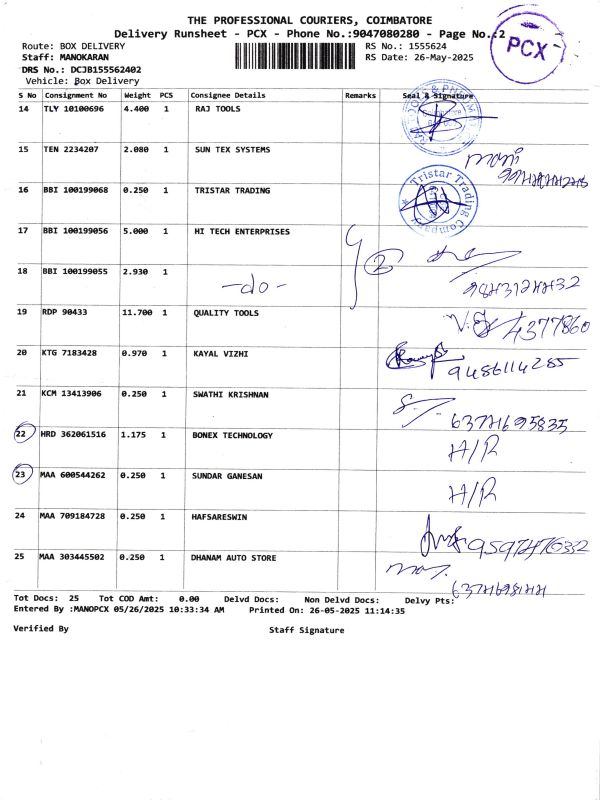 THE PROFESSIONAL COURIERS, COIMBATORE
Delivery Runsheet - PCX - Phone No.:9047080280 - Page No.:2
PCX
Route: BOX DELIVERY RS No.: 1555624
Staff: MANOKARAN RS Date: 26-May-2025
DRS No.: DCJB155562402
Vehicle: Box Delivery
S No Consignment No Weight PCS Consignee Details Remarks Seal & Signature
14 TLY 10100696 4.400 1 RAJ TOOLS
15 TEN 2234207 2.080 1 SUN TEX SYSTEMS
mani
16 BBI 100199068 0.250 1 TRISTAR TRADING
Tristar Trading Company
17 BBI 100199056 5.000 1 HI TECH ENTERPRISES
2
18 BBI 100199055 2.930 1
-do-
19 RDP 90433 11.700 1 QUALITY TOOLS
4377860
20 KTG 7183428 0.970 1 KAYAL VIZHI
9486114285
21 KCM 13413906 0.250 1 SWATHI KRISHNAN
6374695835
22 HRD 362061516 1.175 1 BONEX TECHNOLOGY
H/R
23 MAA 600544262 0.250 1 SUNDAR GANESAN
H/R
24 MAA 709184728 0.250 1 HAFSARESWIN
9597476332
25 MAA 303445502 0.250 1 DHANAM AUTO STORE
Tot Docs: 25 Tot COD Amt: 0.00 Delvd Docs: Non Delvd Docs: Delvy Pts:
Entered By :MANOPCX 05/26/2025 10:33:34 AM Printed On: 26-05-2025 11:14:35
Verified By Staff Signature